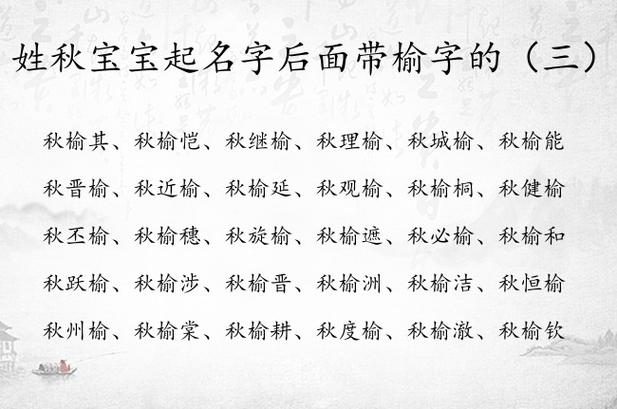 姓秋宝宝起名字后面带榆字的（三）
秋榆其、秋榆恺、秋继榆、秋理榆、秋城榆、秋榆能
秋晋榆、秋近榆、秋榆延、秋观榆、秋榆桐、秋健榆
秋丕榆、秋榆穗、秋旋榆、秋榆遮、秋必榆、秋榆和
秋跃榆、秋榆涉、秋榆晋、秋榆洲、秋榆洁、秋恒榆
秋州榆、秋榆棠、秋榆耕、秋度榆、秋榆澈、秋榆钦